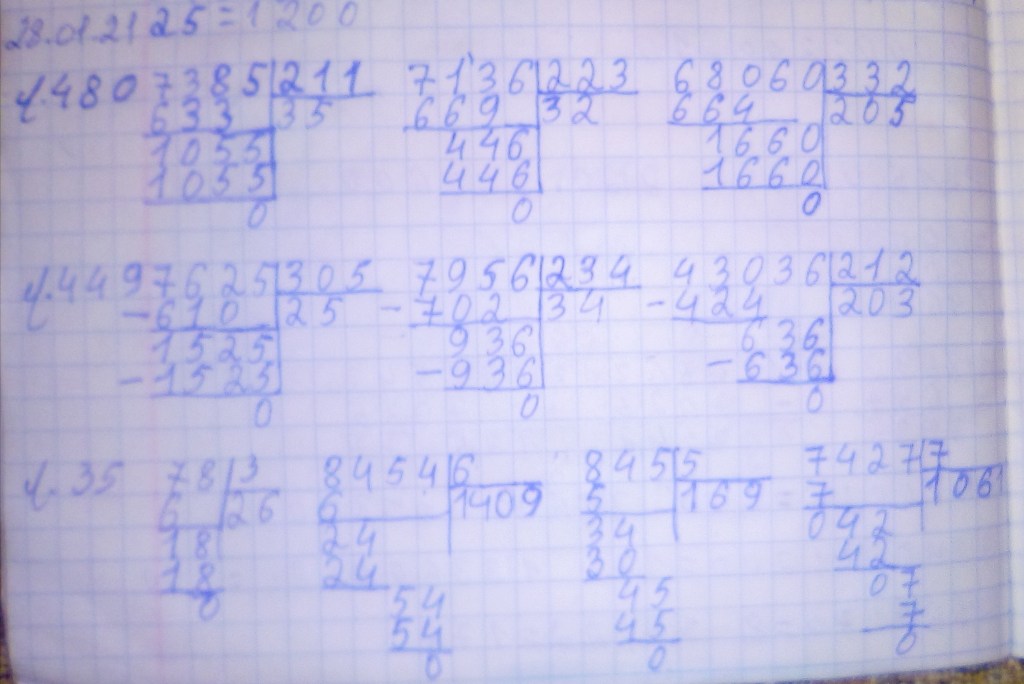 28.01.21 25 = 1 200
ч.480 7385 211 7136 223 68060 332
633 35 669 32 664 205
1055 446 1660
1055 446 1660
0 0 0
ч.449 7625 305 7956 234 43036 212
-610 25 -702 34 -424 203
1525 936 636
-1525 -936 -636
0 0 0
ч.35 78 3 8454 6 845 5 7427 7
6 26 6 1409 5 169 7 1061
18 24 34 042
18 24 30 42
0 54 45 07
54 45 7
0 0 0